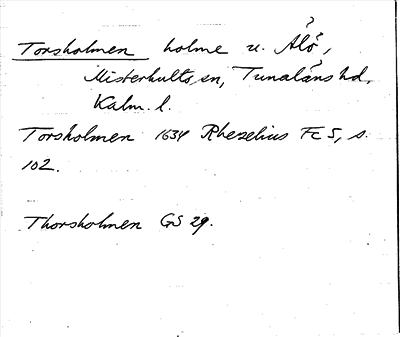 Torsholmen holme u. Ålö,
Misterhults sn, Tunaläns hd,
Kalm. l.
Torsholmen 1634 Rhezelius Fc 5, s.
102.
Thorsholmen GS 29.